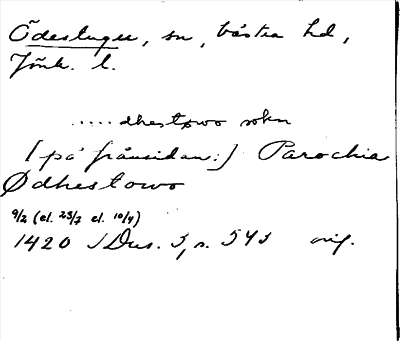 Ödestugu, sn, Västra hd,
Jönk. l.
..... dhestowo sokn
[på frånsidan:] Parochia
Ødhestowo
9/2 (el. 23/7 el. 10/4)
1420 SDns. 3, s. 543 orig.